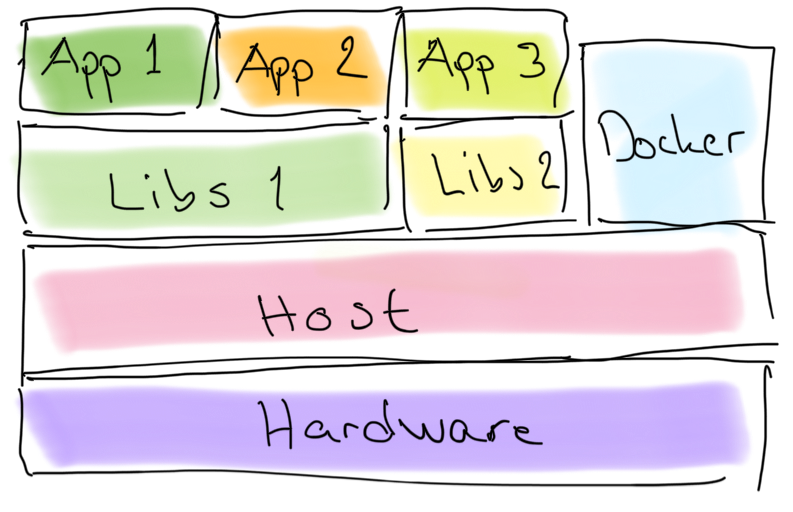 App 1
App 2
App 3
Docker
Libs 1
Libs 2
Host
Hardware